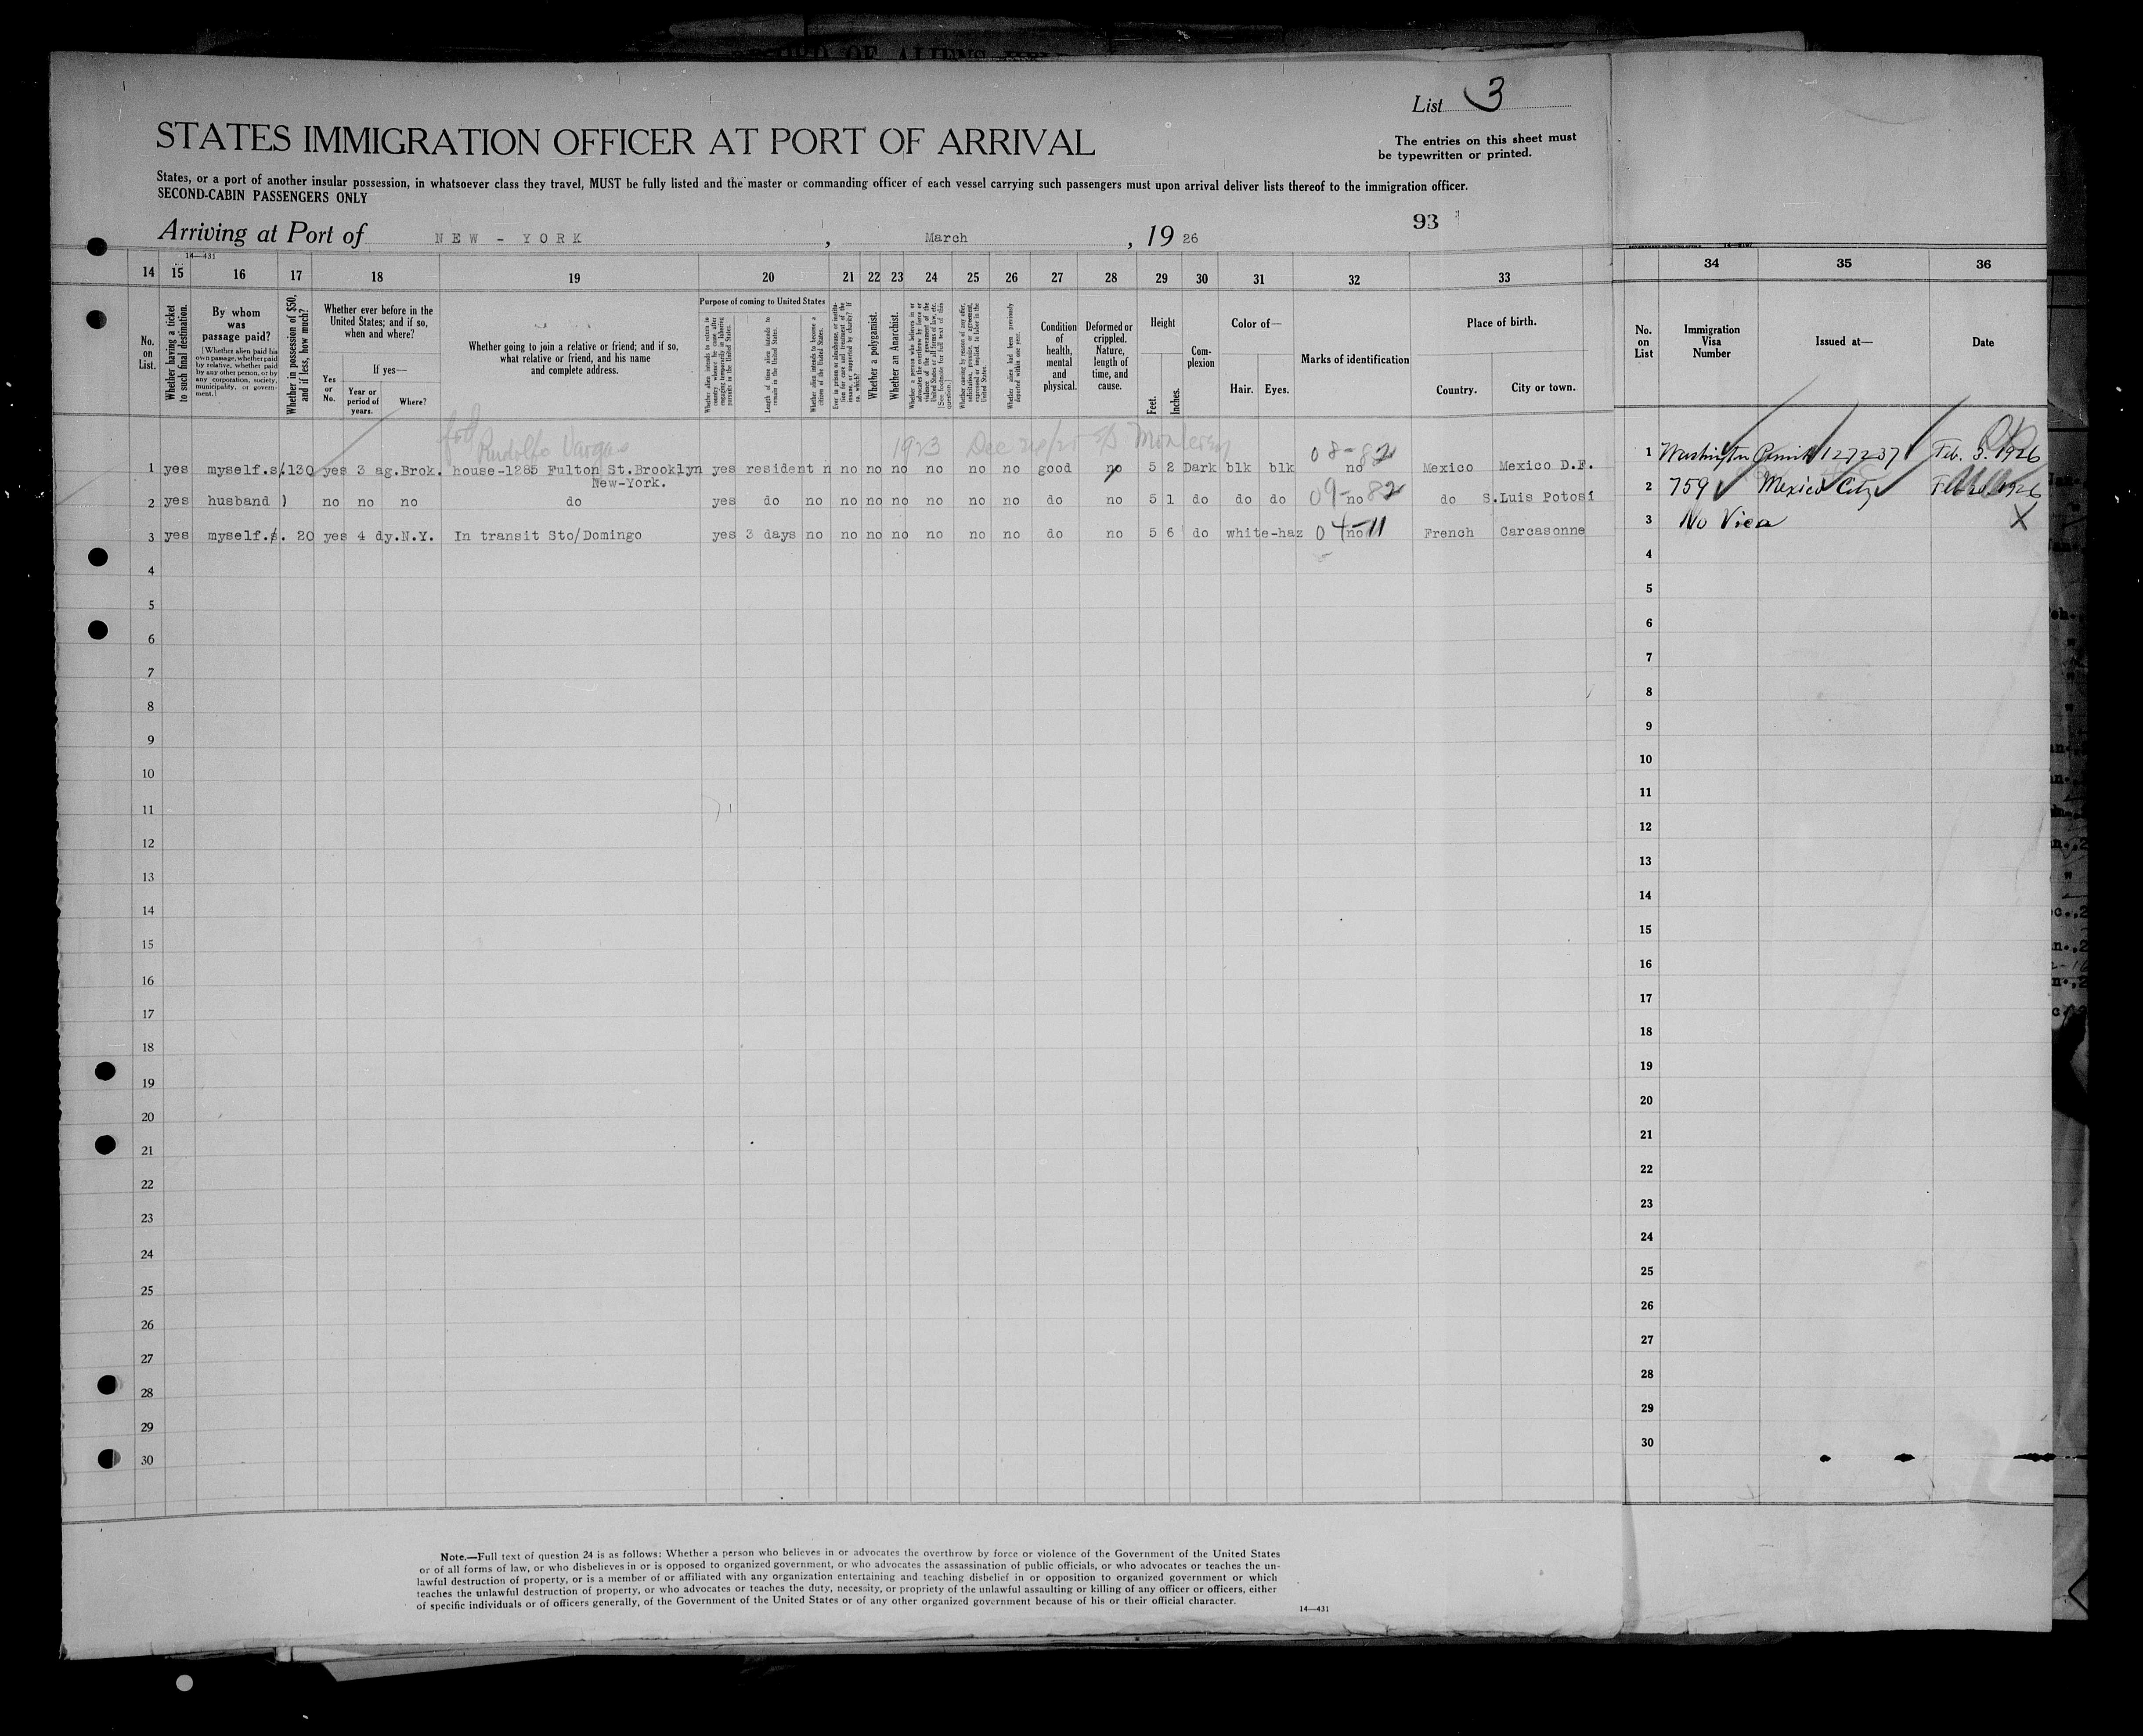 RECORD OF ALIENS HELD
List 3
STATES IMMIGRATION OFFICER AT PORT OF ARRIVAL
The entries on this sheet must
be typewritten or printed.
States, or a port of another insular possession, in whatsoever class they travel, MUST be fully listed and the master or commanding officer of each vessel carrying such passengers must upon arrival deliver lists thereof to the immigration officer.
SECOND-CABIN PASSENGERS ONLY
93
Arriving at Port of NEW - YORK , March , 19 26
14—431
14 15 16 17 18 19 20 21 22 23 24 25 26 27 28 29 30 31 32 33 34 35 36
No. on List.
Whether having a ticket to such final destination.
By whom was passage paid?
(Whether alien paid his own passage, whether paid by relative, whether paid by any other person, or by any corporation, society, municipality, or government.)
Whether in possession of $50, and if less, how much?
Whether ever before in the United States; and if so, when and where?
Yes or No.
If yes—
Year or period of years.
Where?
Whether going to join a relative or friend; and if so, what relative or friend, and his name and complete address.
Purpose of coming to United States
Whether alien intends to return to country whence he came after engaging temporarily in laboring pursuits in the United States.
Length of time alien intends to remain in the United States.
Whether alien intends to become a citizen of the United States.
Ever in prison or almshouse, or institution for care and treatment of the insane, or supported by charity? If so, which?
Whether a polygamist.
Whether an Anarchist.
Whether a person who believes in or advocates the overthrow by force or violence of the Government of the United States or all forms of law, etc. (See footnote for full text of this question.)
Whether coming by reason of any offer, solicitation, promise, or agreement, expressed or implied, to labor in the United States.
Whether alien had been previously deported within one year.
Condition of health, mental and physical.
Deformed or crippled. Nature, length of time, and cause.
Height
Feet. Inches.
Complexion
Color of—
Hair. Eyes.
Marks of identification
Place of birth.
Country. City or town.
No. on List
Immigration Visa Number
Issued at—
Date
Rudolfo Vargas 1923 Dec 24/25 SS Monterey 08-82
1 yes myself. s/.130 yes 3 ag.Brok. house-1285 Fulton St.Brooklyn yes resident n no no no no no no good no 5 2 Dark blk blk no Mexico Mexico D.F. 1 Washington Permit 127237 Feb. 5. 1926
New-York.
2 yes husband ) no no no do yes do no no no no no no no do no 5 1 do do do 09-82 no do S.Luis Potosi 2 759 Mexico City Feb 1926
3 yes myself. s. 20 yes 4 dy.N.Y. In transit Sto/Domingo yes 3 days no no no no no no no do no 5 6 do white-haz 04-11 no French Carcasonne 3 No Visa X
4 4
5 5
6 6
7 7
8 8
9 9
10 10
11 11
12 12
13 13
14 14
15 15
16 16
17 17
18 18
19 19
20 20
21 21
22 22
23 23
24 24
25 25
26 26
27 27
28 28
29 29
30 30
Note.—Full text of question 24 is as follows: Whether a person who believes in or advocates the overthrow by force or violence of the Government of the United States
or of all forms of law, or who disbelieves in or is opposed to organized government, or who advocates the assassination of public officials, or who advocates or teaches the un-
lawful destruction of property, or is a member of or affiliated with any organization entertaining and teaching disbelief in or opposition to organized government or which
teaches the unlawful destruction of property, or who advocates or teaches the duty, necessity, or propriety of the unlawful assaulting or killing of any officer or officers, either
of specific individuals or of officers generally, of the Government of the United States or of any other organized government because of his or their official character.
14—431